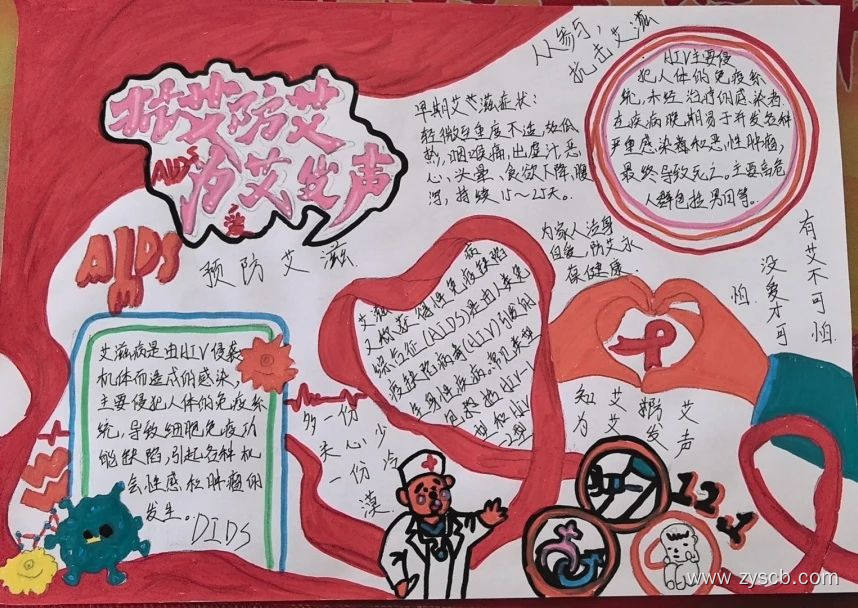 抗艾防艾
AIDS
为艾发声
AIDS
预防艾滋
人人参与,
抗击艾滋
早期艾艾滋症状:
轻微与重度不适,如低
热,咽喉痛,出虚汗,恶
心、头晕、食欲下降、腹
泻,持续15~25天。
HIV主要侵
犯人体的免疫系
统,未经治疗的感染者
在疾病晚期易于并发各种
严重感染毒和恶性肿瘤,
最终导致死亡。主要高危
人群包括男同等。
为家人洁身
自爱,防艾永
葆健康
有艾不可怕
没爱才可
怕
艾滋病
又称获得性免疫缺陷
综合征(AIDS)是由人类免
疫缺陷病毒(HIV)引起的
全身性疾病,常见类型
包括HIV-1
型和HIV
-2型
艾滋病是由HIV侵袭
机体而造成的感染,
主要侵犯人体的免疫系
统,导致细胞免疫功
能缺陷,引起各种机
会性感和肿瘤的
发生。
DIDS
多一份
关心,少
一份冷
漠
知艾防艾
为艾发声
12.1
www.zyscb.com